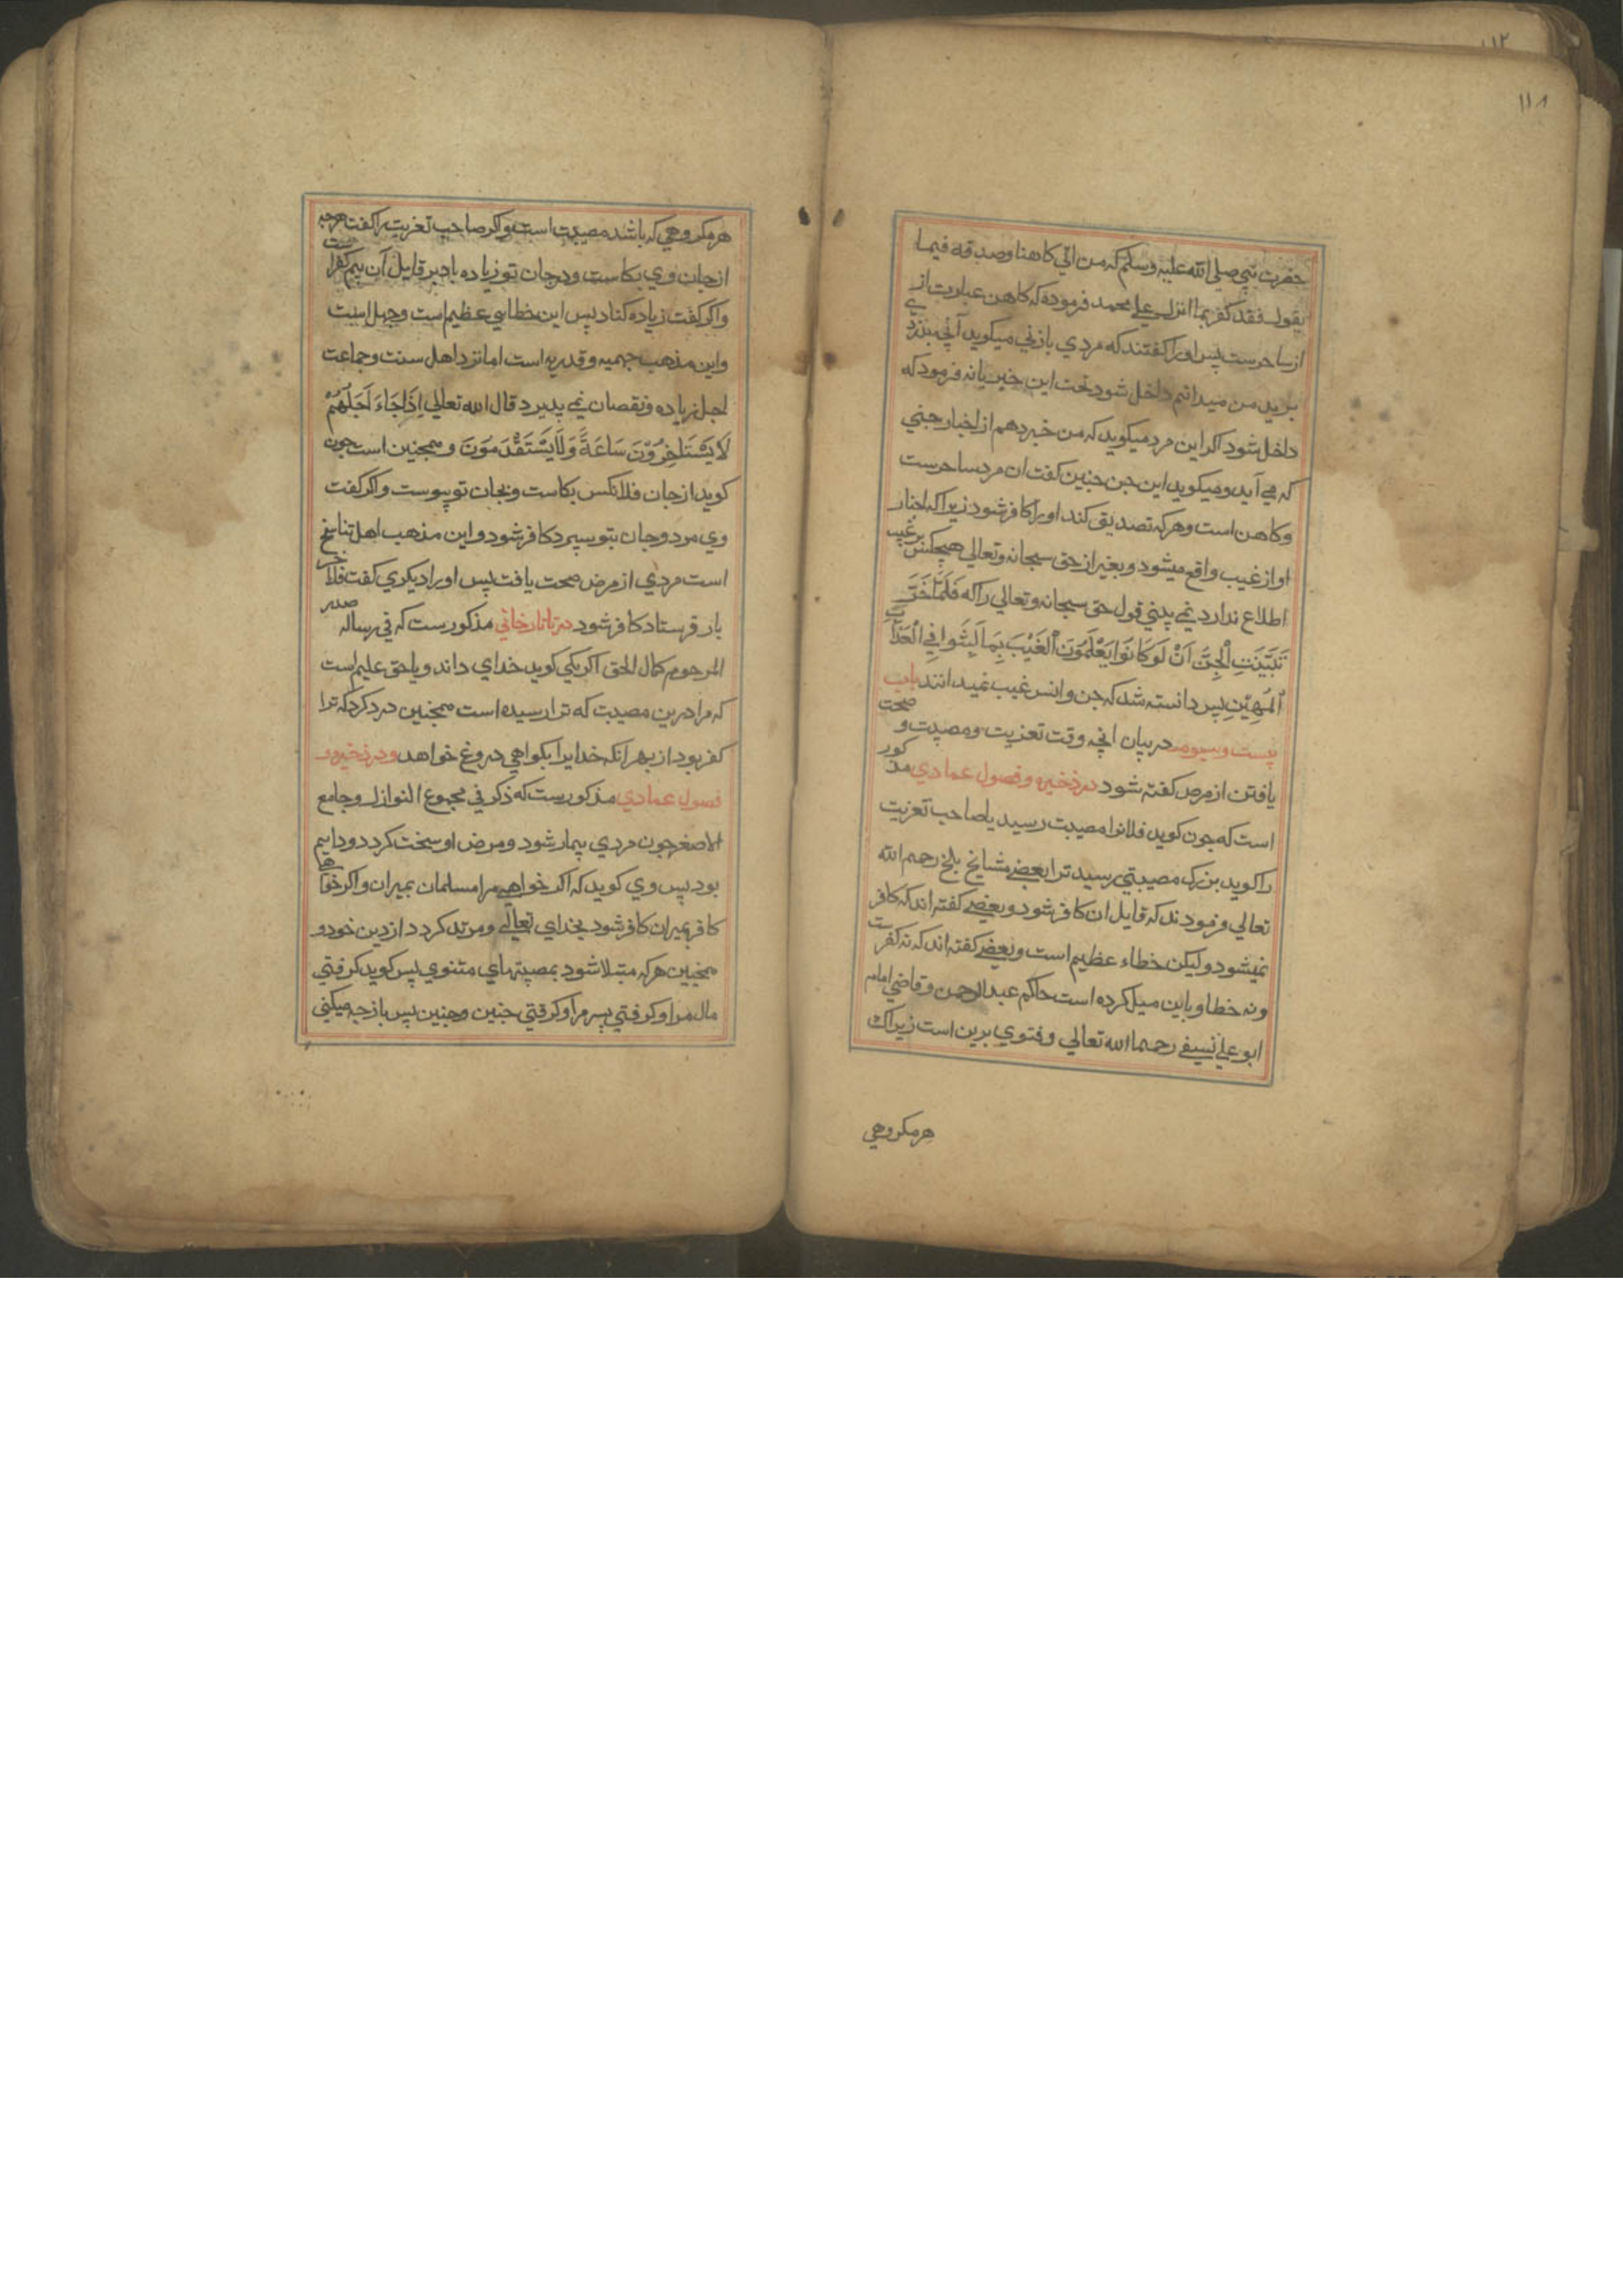 ١١٨
حضرت نبي صلى الله عليه وسلم كه من اتي كاهنا وصدقه فيما
يقول فقد كفر بما انزل علي محمد فرموده كه كاهن عبارت از
از ساحرست پس او را كفتند كه مردي يا زني ميكويد آنچه بنزدي
برند من ميدانم داخل شود تحت اين خبر يا نه فرمود كه
داخل شود اكر اين مرد ميكويد كه من خبر دهم از اخبار جني
كه مي آيد و ميكويد اين جن جنين كفت ان مرد ساحرست
وكاهن است وهركه تصديق كند او را كافر شود زيراكه اخبار
او از غيب واقع ميشود و بغير از حق سبحانه وتعالي هيچكس بر غيب
اطلاع ندارد نمي بيني قول حق سبحانه وتعالي راكه فَلَمَّا خَرَّ
تَبَيَّنَتِ الْجِنُّ اَنْ لَوْ كَانُوا يَعْلَمُونَ الْغَيْبَ مَا لَبِثُوا فِي الْعَذَابِ
الْمُهِيْنِ پس دانسته شد كه جن وانس غيب نميدانند باب
بيست وسيوم در بيان انچه وقت تعزيت ومصيبت و صحت
يافتن از مرض كفته شود در ذخيره وفصول عمادي مذكور
است كه جون كويد فلانرا مصيبت رسيد يا صاحب تعزيت
را كويد بزرك مصيبتي رسيد ترا بعضي مشايخ بلخ رحمه الله
تعالي فرمودند كه قايل ان كافر شود و بعضي كفته اند كه كافر
نميشود وليكن خطاء عظيم است وبعضي كفته اند كه نه كفرست
ونه خطا و باين ميل كرده است حاكم عبد الرحمن وقاضي امام
ابو علي نسيفي رحمهما الله تعالي وفتوي برين است زيراك
هرمكروهي
هرمكروهي كه باشد مصيبت است واكر صاحب تعزيت را كفت هرچه
از جان وي بكاست ودرجان تو زياده باد بر قايل آن بيم كفراست
واكر كفت زياده كناد پس اين خطائي عظيم است وجهل است
واين مذهب جهميه وقدريه است اما نزد اهل سنت وجماعت
اجل زياده ونقصان نمي پذيرد قال الله تعالي اِذَا جَاءَ اَجَلُهُمْ
لَا يَسْتَاخِرُوْنَ سَاعَةً وَلَا يَسْتَقْدِمُوْنَ و همجنين است جون
كويد از جان فلانكس بكاست وبجان تو پيوست واكر كفت
وي مرد وجان بتو سپرد كافر شود و اين مذهب اهل تناسخ
است مردي از مرض صحت يافت پس او را ديكري كفت فلان خر
باز فرستاد كافر شود در تاتارخاني مذكورست كه في رساله صدر
المرحوم كمال الحق اكر يكي كويد خداي داند و يا حق عليم است
كه مرا درين مصيبت كه ترا رسيده است همجنين درد كرد كه ترا
كفر بود از بهر انكه خدايرا بكواهي دروغ خواهد و در ذخيره و
فصول عمادي مذكورست كه ذكر في مجموع النوازل وجامع
الاصغر جون مردي بيمار شود ومرض او سخت كردد ودايم
بود پس وي كويد كه اكر خواهي مرا مسلمان بميران واكر خواهي
كافر بميران كافر شود بخداي تعالي ومرتد كردد از دين خود و
همجنين هركه مبتلا شود بمصيبتهاي متنوي پس كويد كرفتي
مال مرا وكرفتي پسر مرا وكرفتي جنين وجنين پس باز چه ميكني